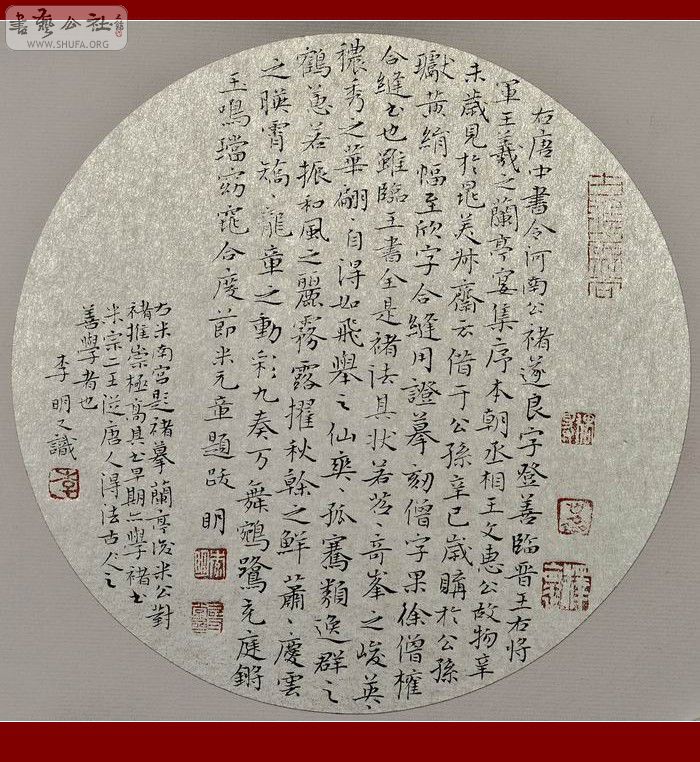 書藝公社
WWW.SHUFA.ORG
右唐中書令河南公褚遂良字登善臨晉王右將
軍王羲之蘭亭宴集序本朝丞相王文惠公故物辛
未歲見於晁美叔齋云借于公孫辛巳歲購於公孫
瓛黃絹幅至欣字合縫用證摹刻僧字果徐僧權
合縫書也雖臨王書全是褚法其狀若岧〻奇峯之峻英〻
穠秀之華翩〻自得如飛舉之仙爽〻孤騫類逸群之
鶴蕙若振和風之麗霧露擢秋幹之鮮蕭〻慶雲
之暎霄矯〻龍章之動彩九奏万舞鵷鷺充庭鏘
玉鳴璫窈窕合度節米元章題跋 明
右米南宮題褚摹蘭亭後米公對
褚推崇極高其書早期亦學褚書
米宗二王從唐人得法古人之
善學者也
李明又識